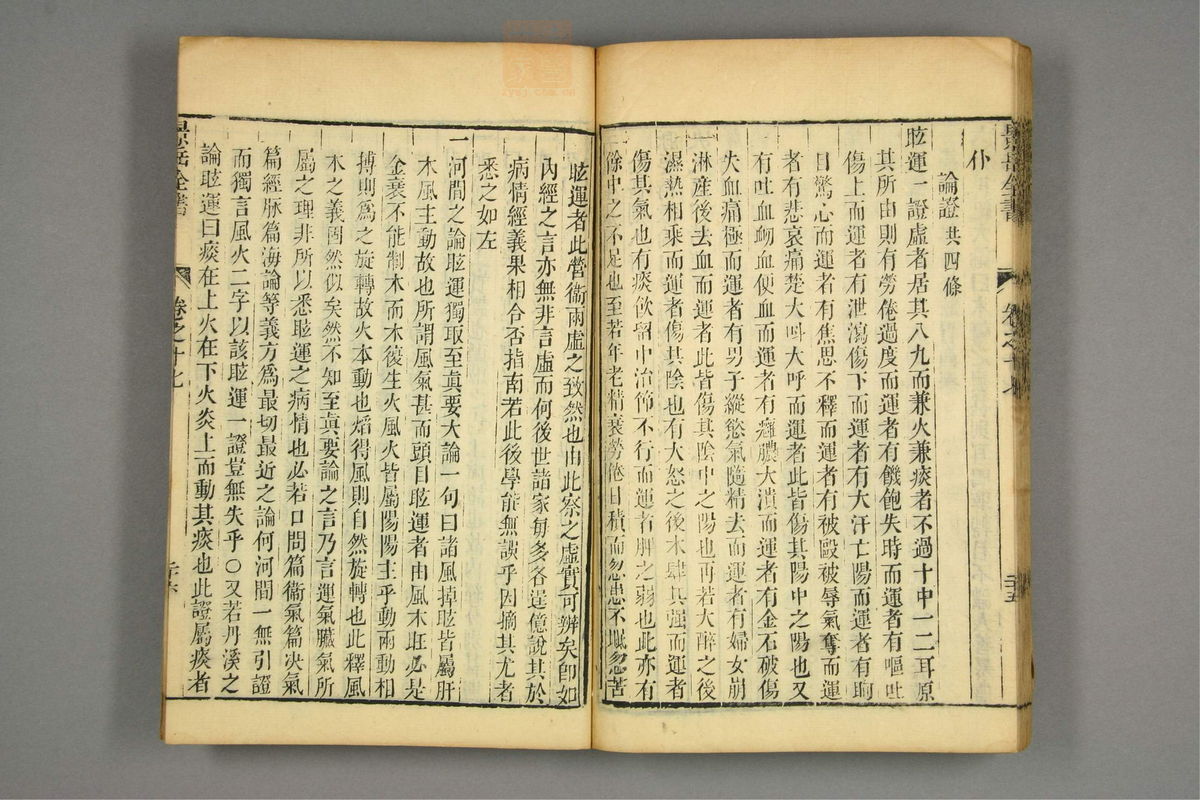 景岳全書
卷之十七
二十五
仆
論證共四條
眩運一證虛者居其八九而兼火兼痰者不過十中一二耳原
其所由則有勞倦過度而運者有饑飽失時而運者有嘔吐
傷上而運者有泄瀉傷下而運者有大汗亡陽而運者有眴
目驚心而運者有焦思不釋而運者有被毆被辱氣奪而運
者有悲哀痛楚大呌大呼而運者此皆傷其陽中之陽也又
有吐血衂血便血而運者有癰膿大潰而運者有金石破傷
失血痛極而運者有男子縱慾氣隨精去而運者有婦女崩
淋產後去血而運者此皆傷其陰中之陽也再若大醉之後
濕熱相乘而運者傷其陰也有大怒之後木肆其强而運者
傷其氣也有痰飲留中治節不行而運者脾之弱也此亦有
餘中之不足也至若年老精衰勞倦日積而忽患不眠忽苦
眩運者此營衞兩虛之致然也由此察之虛實可辨矣卽如
內經之言亦無非言虛而何後世諸家每多各逞億說其於
病情經義果相合否指南若此後學能無誤乎因摘其尤者
悉之如左
一河間之論眩運獨取至眞要大論一句曰諸風掉眩皆屬肝
木風主動故也所謂風氣甚而頭目眩運者由風木旺必是
金衰不能制木而木復生火風火皆屬陽陽主乎動兩動相
搏則爲之旋轉故火本動也焰得風則自然旋轉也此釋風
木之義固然似矣然不知至眞要論之言乃言運氣臟氣所
屬之理非所以悉眩運之病情也必若口問篇衞氣篇決氣
篇經脉篇海論等義方爲最切最近之論何河間一無引證
而獨言風火二字以該眩運一證豈無失乎○又若丹溪之
論眩運曰痰在上火在下火炎上而動其痰也此證屬痰者
景岳全書
卷之十七
二十六